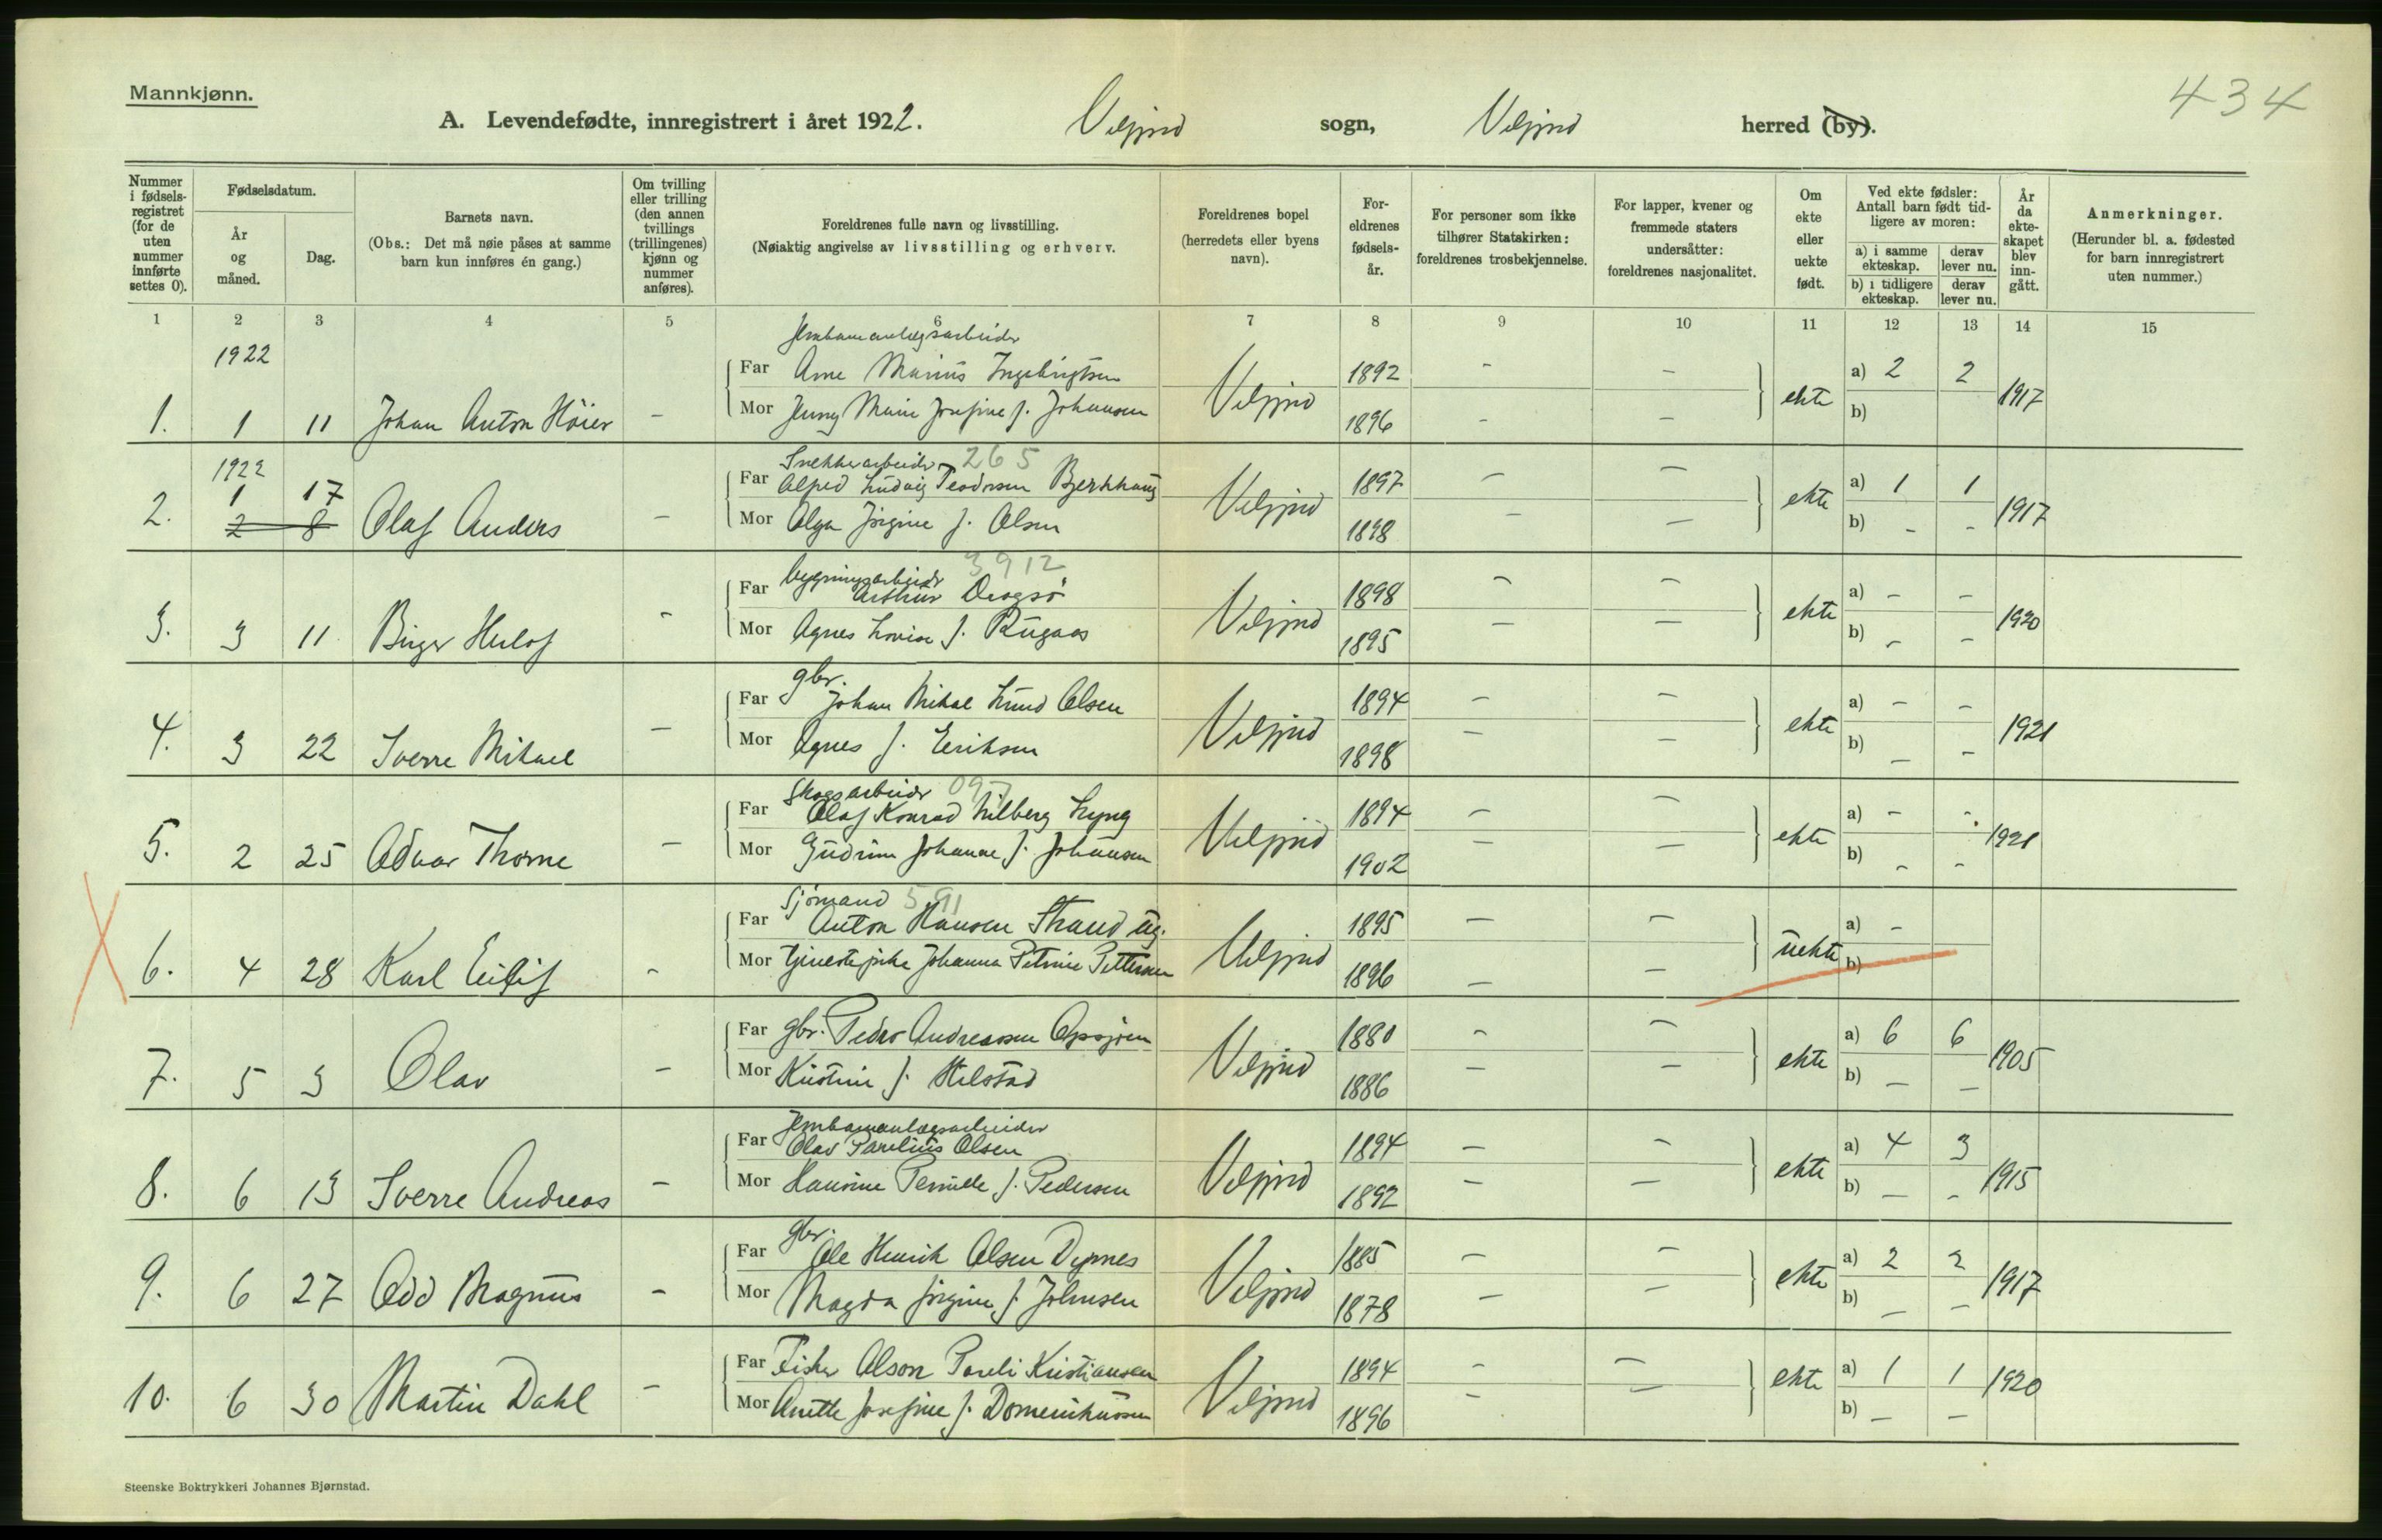 Mannkjønn.
434
A. Levendefødte, innregistrert i året 1922. Veljord sogn, Veljord herred (by).
Nummer i fødselsregistret (for de uten nummer innførte settes 0).
Fødselsdatum.
År og måned.
Dag.
Barnets navn.
(Obs.: Det må nøie påses at samme barn kun innføres én gang.)
Om tvilling eller trilling (den annen tvillings (trillingenes) kjønn og nummer anføres).
Foreldrenes fulle navn og livsstilling.
(Nøiaktig angivelse av livsstilling og erhverv.
Foreldrenes bopel (herredets eller byens navn).
Foreldrenes fødselsår.
For personer som ikke tilhører Statskirken: foreldrenes trosbekjennelse.
For lapper, kvener og fremmede staters undersåtter: foreldrenes nasjonalitet.
Om ekte eller uekte født.
Ved ekte fødsler: Antall barn født tidligere av moren:
a) i samme ekteskap. derav lever nu.
b) i tidligere ekteskap. derav lever nu.
År da ekteskapet blev inngått.
Anmerkninger.
(Herunder bl. a. fødested for barn innregistrert uten nummer.)
1 2 3 4 5 6 7 8 9 10 11 12 13 14 15
1922
Jernbaneanlægsarbeider
Far Arne Marius Ingebrigtsen 1892 - - a) 2 2
1. 1 11 Johan Anton Höier - Mor Jenny Marie Josefine f. Johansen Veljord 1896 - - ekte b) 1917
1922
Snekkerarbeider 265
1 17 Far Alfred Ludvig Teodorsen Bjerkhaug 1897 - - a) 1 1
2. 2 8 Olaf Anders - Mor Olga Jörgine f. Olsen Veljord 1898 - - ekte b) - - 1917
bygningsarbeider 3912
Far Arthur Dragsö 1898 - - a) - -
3. 3 11 Birger Herlof - Mor Agnes Lovise f. Rugaas Veljord 1895 - - ekte b) - - 1920
gbr.
Far Johan Mikal Lund Olsen 1894 - - a) - -
4. 3 22 Sverre Mikael - Mor Agnes f. Eriksen Veljord 1898 - - ekte b) - - 1921
Skogsarbeider 097
Far Olaf Konrad Hilberg Lyng 1894 - - a) - -
5. 2 25 Advar Thorne - Mor Gudrun Johanne f. Johansen Veljord 1902 - - ekte b) - - 1921
Sjömand 591
Far Anton Hansen Strand ug. 1895 - - a) -
6. 4 28 Karl Eilif - Mor tjenestepike Johanna Petrine Pettersen Veljord 1896 - - uekte b)
Far gbr. Peder Andreassen Opsjöen 1880 - - a) 6 6
7. 5 3 Olav - Mor Kristine f. Hilstad Veljord 1886 - - ekte b) - - 1905
Jernbaneanlægsarbeider
Far Olav Parelius Olsen 1894 - - a) 4 3
8. 6 13 Sverre Andreas - Mor Hansine Pernille f. Pedersen Veljord 1892 - - ekte b) - - 1915
gbr.
Far Ole Henrik Olsen Dypnes 1885 - - a) 2 2
9. 6 27 Odd Magnus - Mor Magda Jörgine f. Johnsen Veljord 1878 - - ekte b) - - 1917
Far Fisker Olson Pareli Kristiansen 1894 - - a) 1 1
10. 6 30 Martin Dahl - Mor Anette Josefine f. Domenikussen Veljord 1896 - - ekte b) - - 1920
Steenske Boktrykkeri Johannes Bjørnstad.